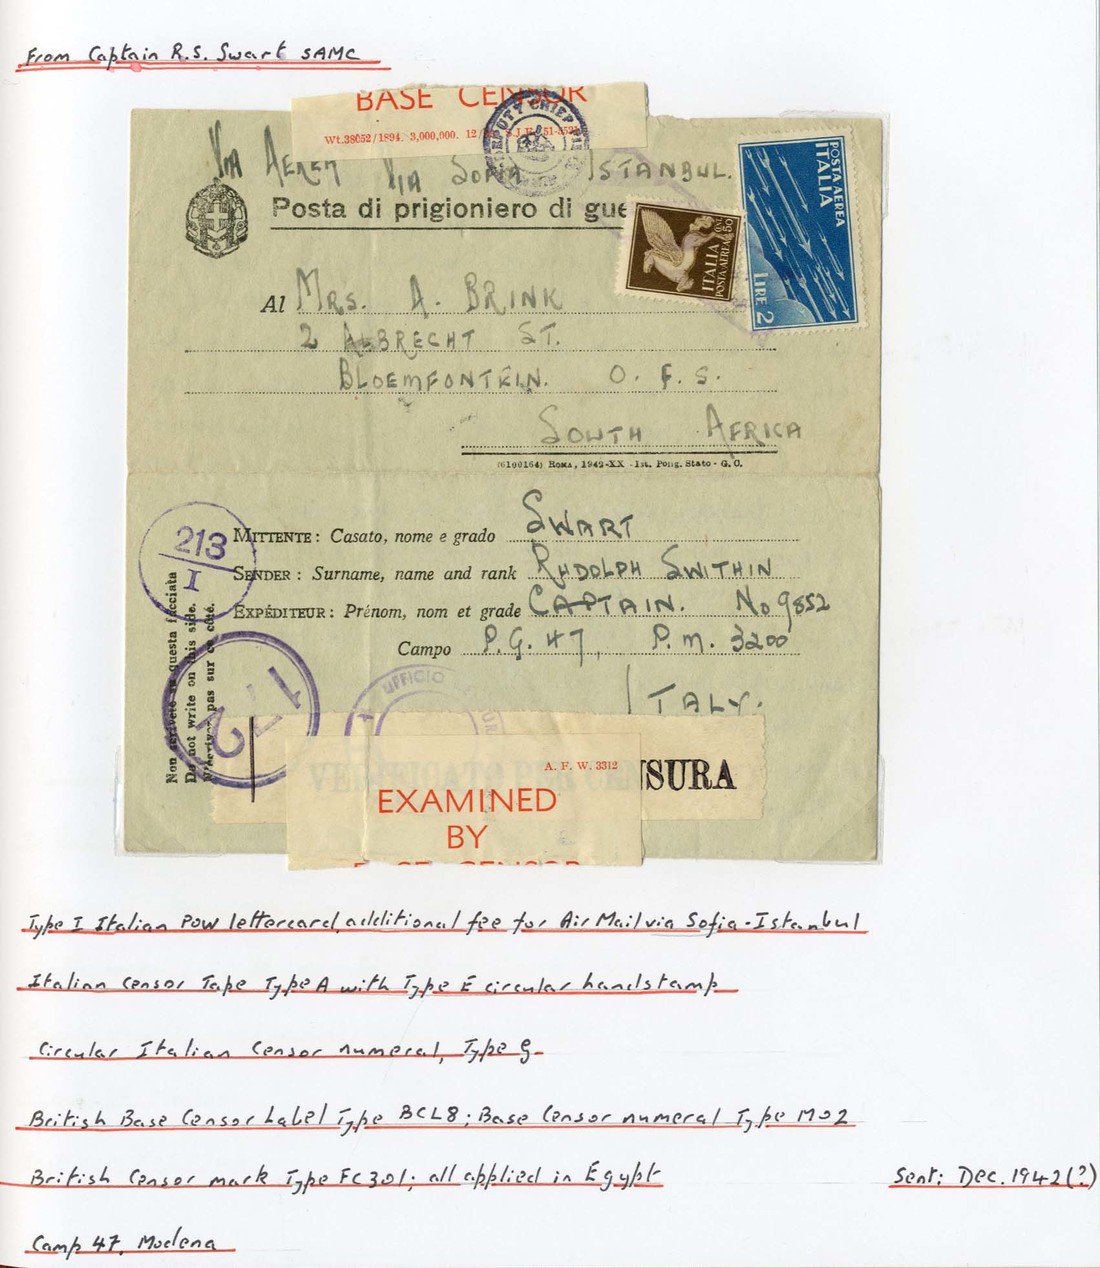 From Captain R.S. Swart SAMC
BASE CENSOR
Wt.38052/1894. 3,000,000. 12/
DEPUTY CHIEF
VIA AEREA VIA SOFIA ISTANBUL.
Posta di prigioniero di gue
ITALIA
POSTA AEREA
CENT. 50
POSTA AEREA
ITALIA
LIRE 2
Al MRS. A. BRINK
2 ALBRECHT ST.
BLOEMFONTEIN. O.F.S.
SOUTH AFRICA
(6100164) ROMA, 1942-XX - Ist. Polig. Stato - G. C.
213
I
MITTENTE: Casato, nome e grado SWART
SENDER: Surname, name and rank RUDOLPH SWITHIN
EXPÉDITEUR: Prénom, nom et grade CAPTAIN. No 9852
Campo P.G. 47, P.M. 3200
ITALY.
Non scrivete su questa facciata
Do not write on this side.
N'écrivez pas sur ce côté.
172
UFFICIO
VERIFICATO PER CENSURA
A. F. W. 3312
EXAMINED
BY
BASE CENSOR
Type I Italian POW lettercard, additional fee for Air Mail via Sofia-Istanbul
Italian Censor Tape Type A with Type E circular handstamp
Circular Italian Censor numeral, Type G.
British Base Censor Label Type BCL8; Base Censor numeral Type MO2
British Censor mark Type FC301; all applied in Egypt
Sent: Dec. 1942(?)
Camp 47, Modena